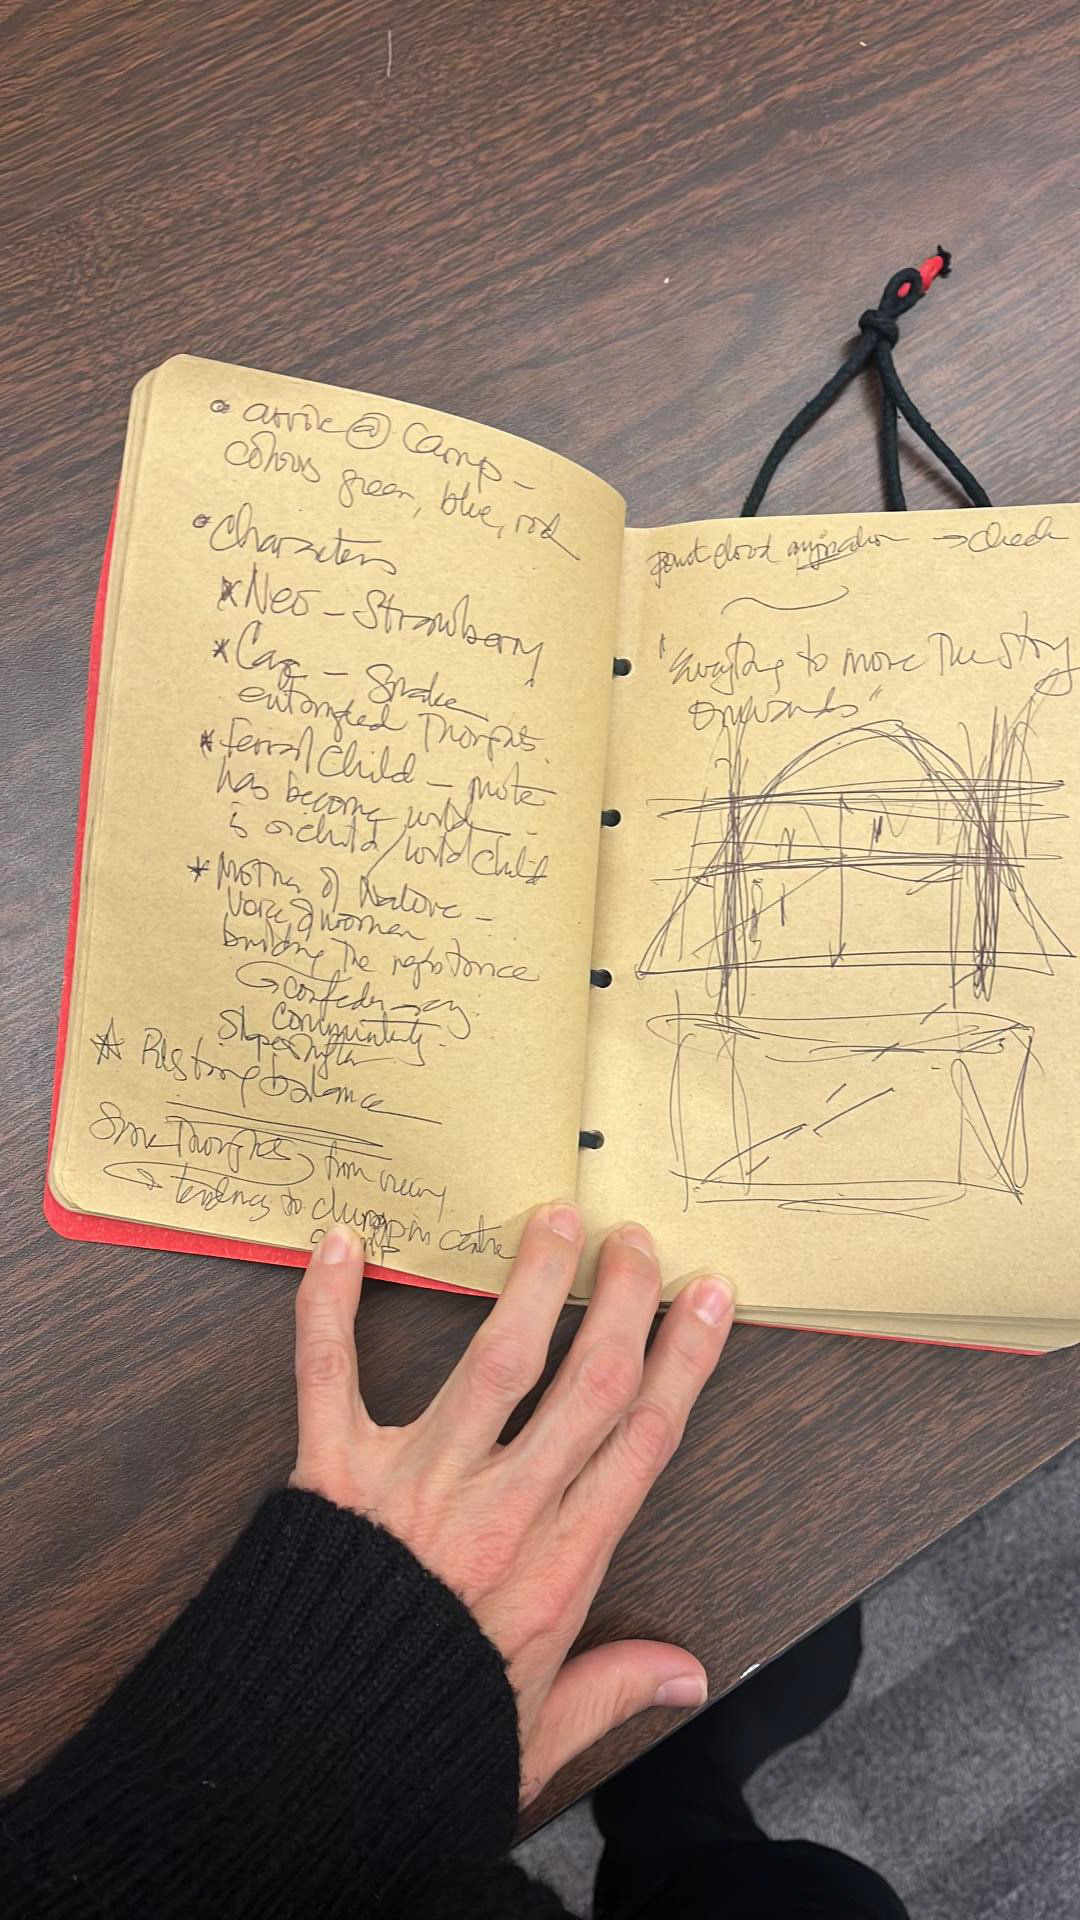 arrive @ Camp -
colours green, blue, red
Characters
* Neo - Strawberry
* Cag - Snake
entangled Thoughts
* feral Child - mute
has become wild -
is orchid / wild child
* Mother of Nature -
Voice of women
building The resistance
confederacy
community
* Restoring balance
Some Thoughts from
tendency to clump in centre
point cloud animation → check
"Everything to move The Story
onwards"